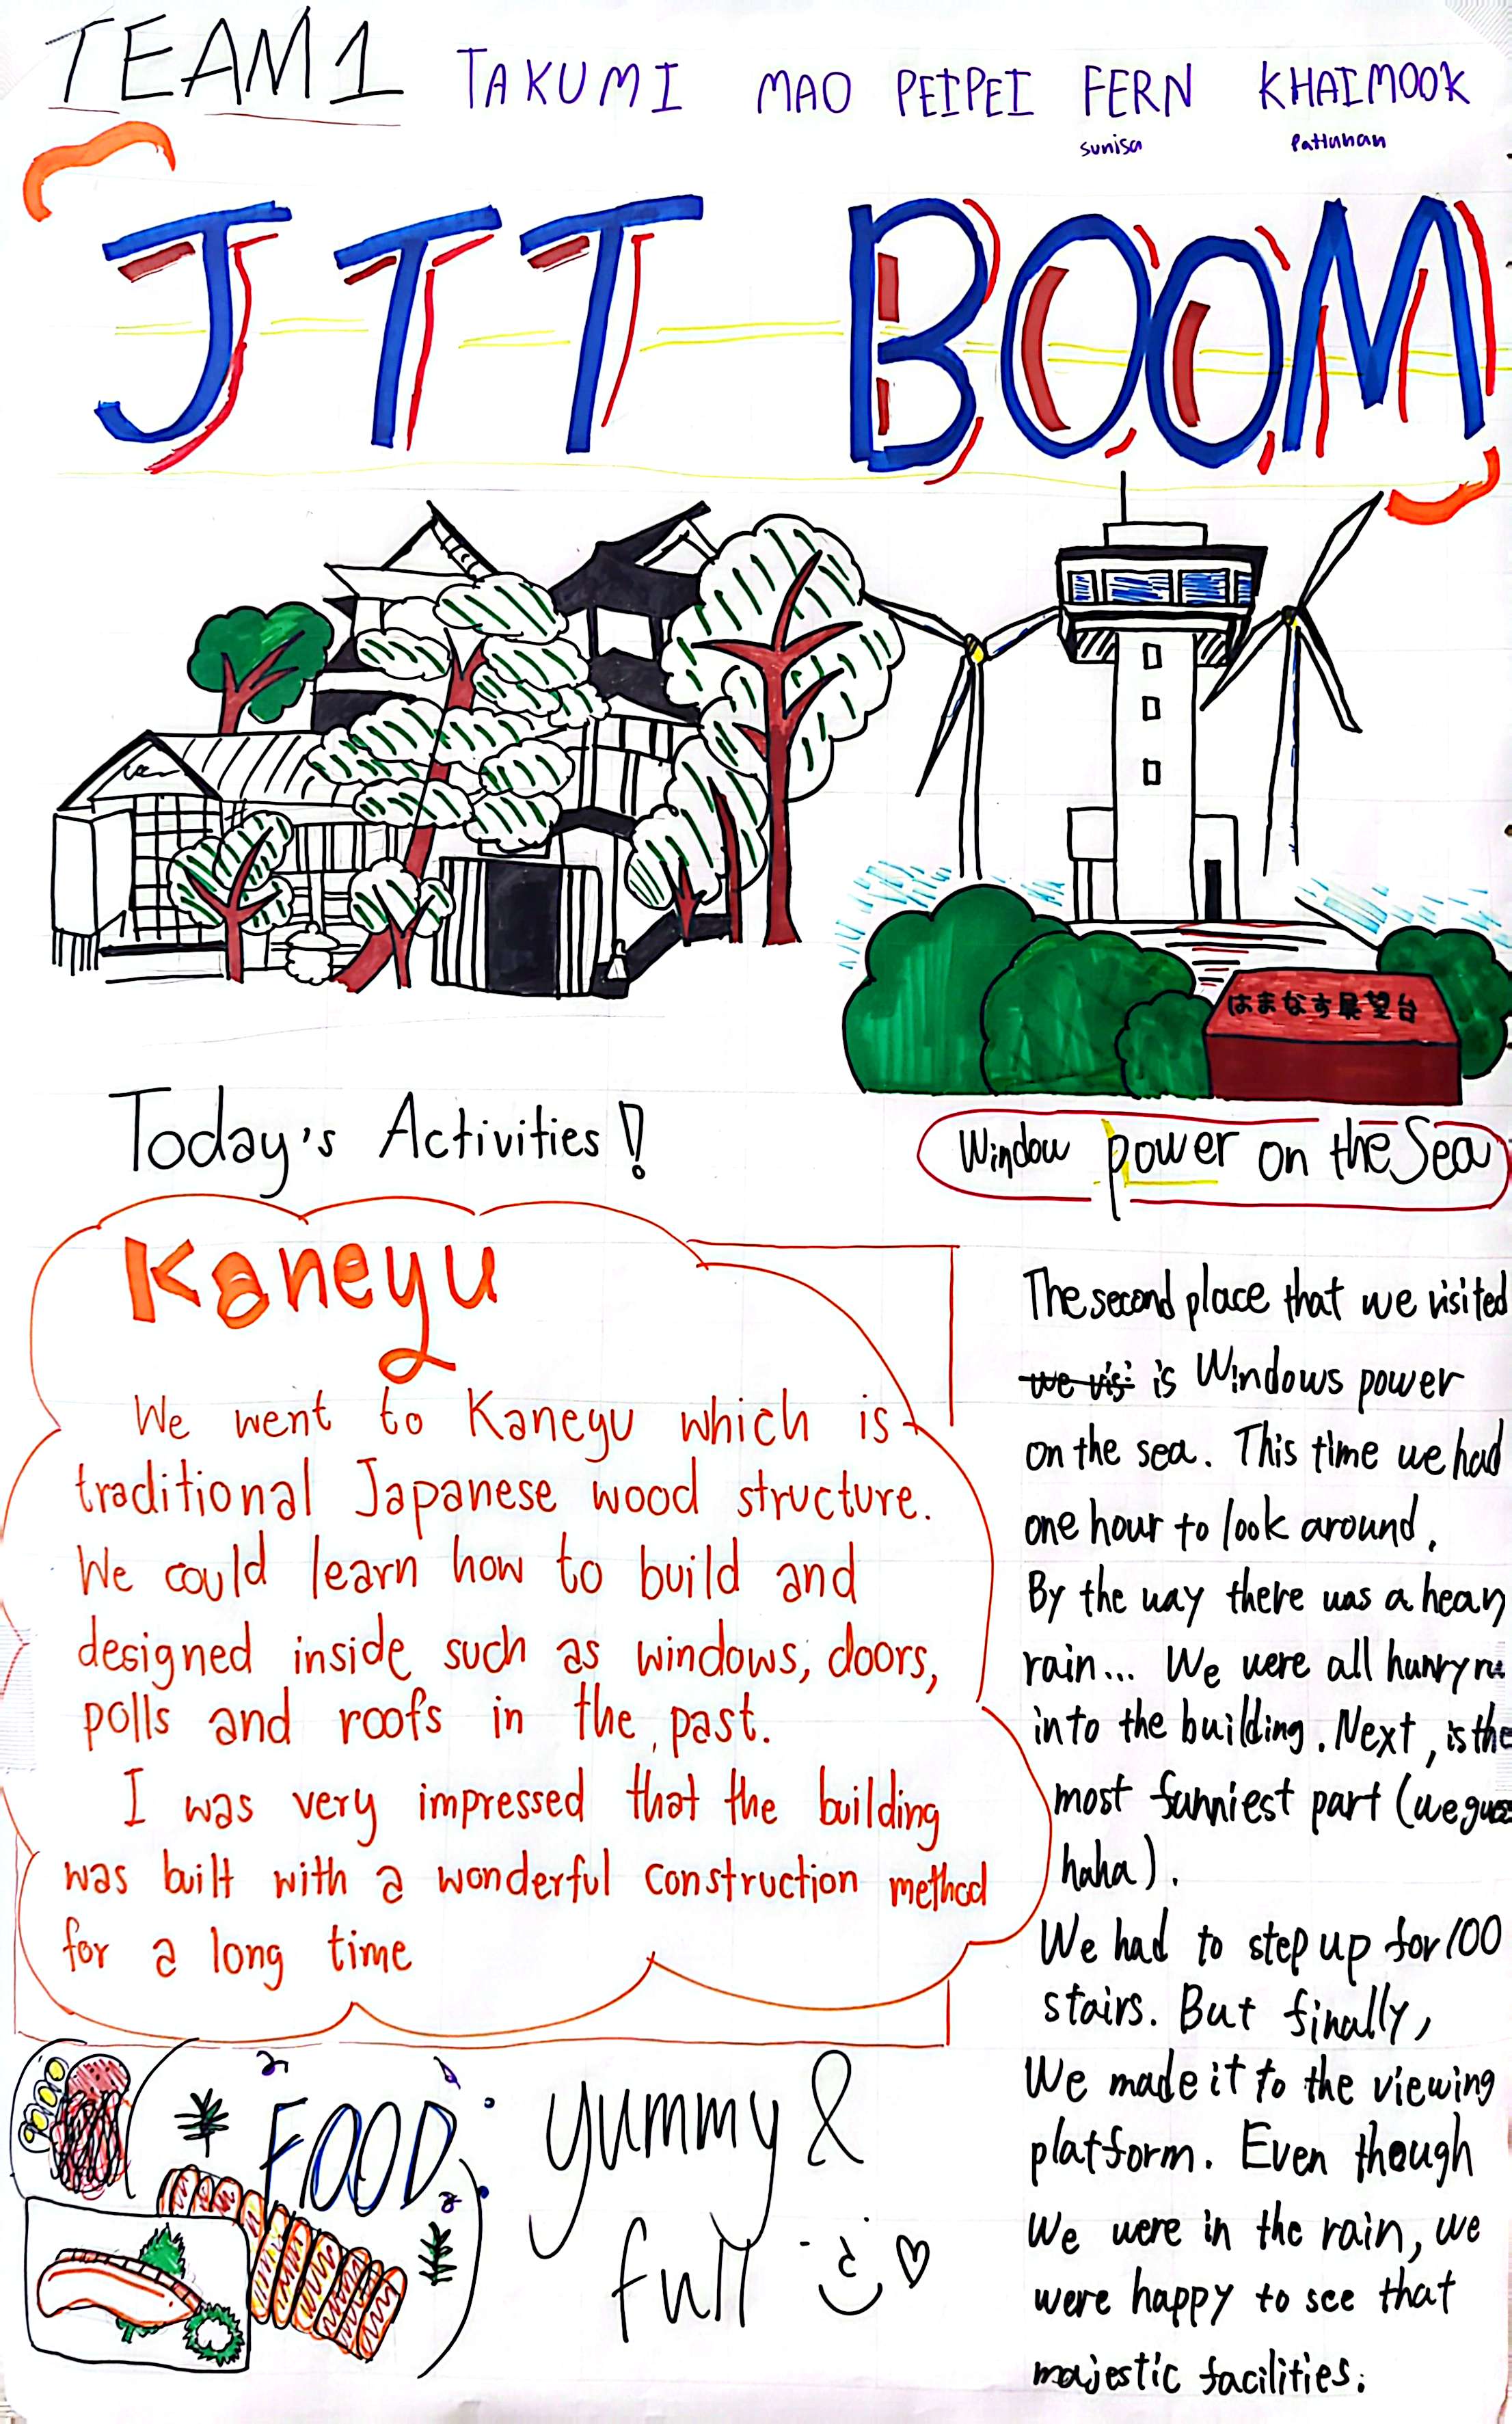 TEAM 1 TAKUMI MAO PEIPEI FERN KHAIMOOK
sunisa
JTT BOOM
はまなす展望台
Today's Activities!
Kaneyu
We went to Kaneyu which is
traditional Japanese wood structure.
We could learn how to build and
designed inside such as windows, doors,
polls and roofs in the past.
I was very impressed that the building
was built with a wonderful construction method
for a long time
FOOD: yummy &
full
Window power on the Sea
The second place that we visited
we vis is Windows power
on the sea. This time we had
one hour to look around.
By the way there was a heavy
rain... We were all hurry
into the building. Next, is the
most funniest part (we guess
haha).
We had to step up for 100
stairs. But finally,
We made it to the viewing
platform. Even though
We were in the rain, we
were happy to see that
majestic facilities.